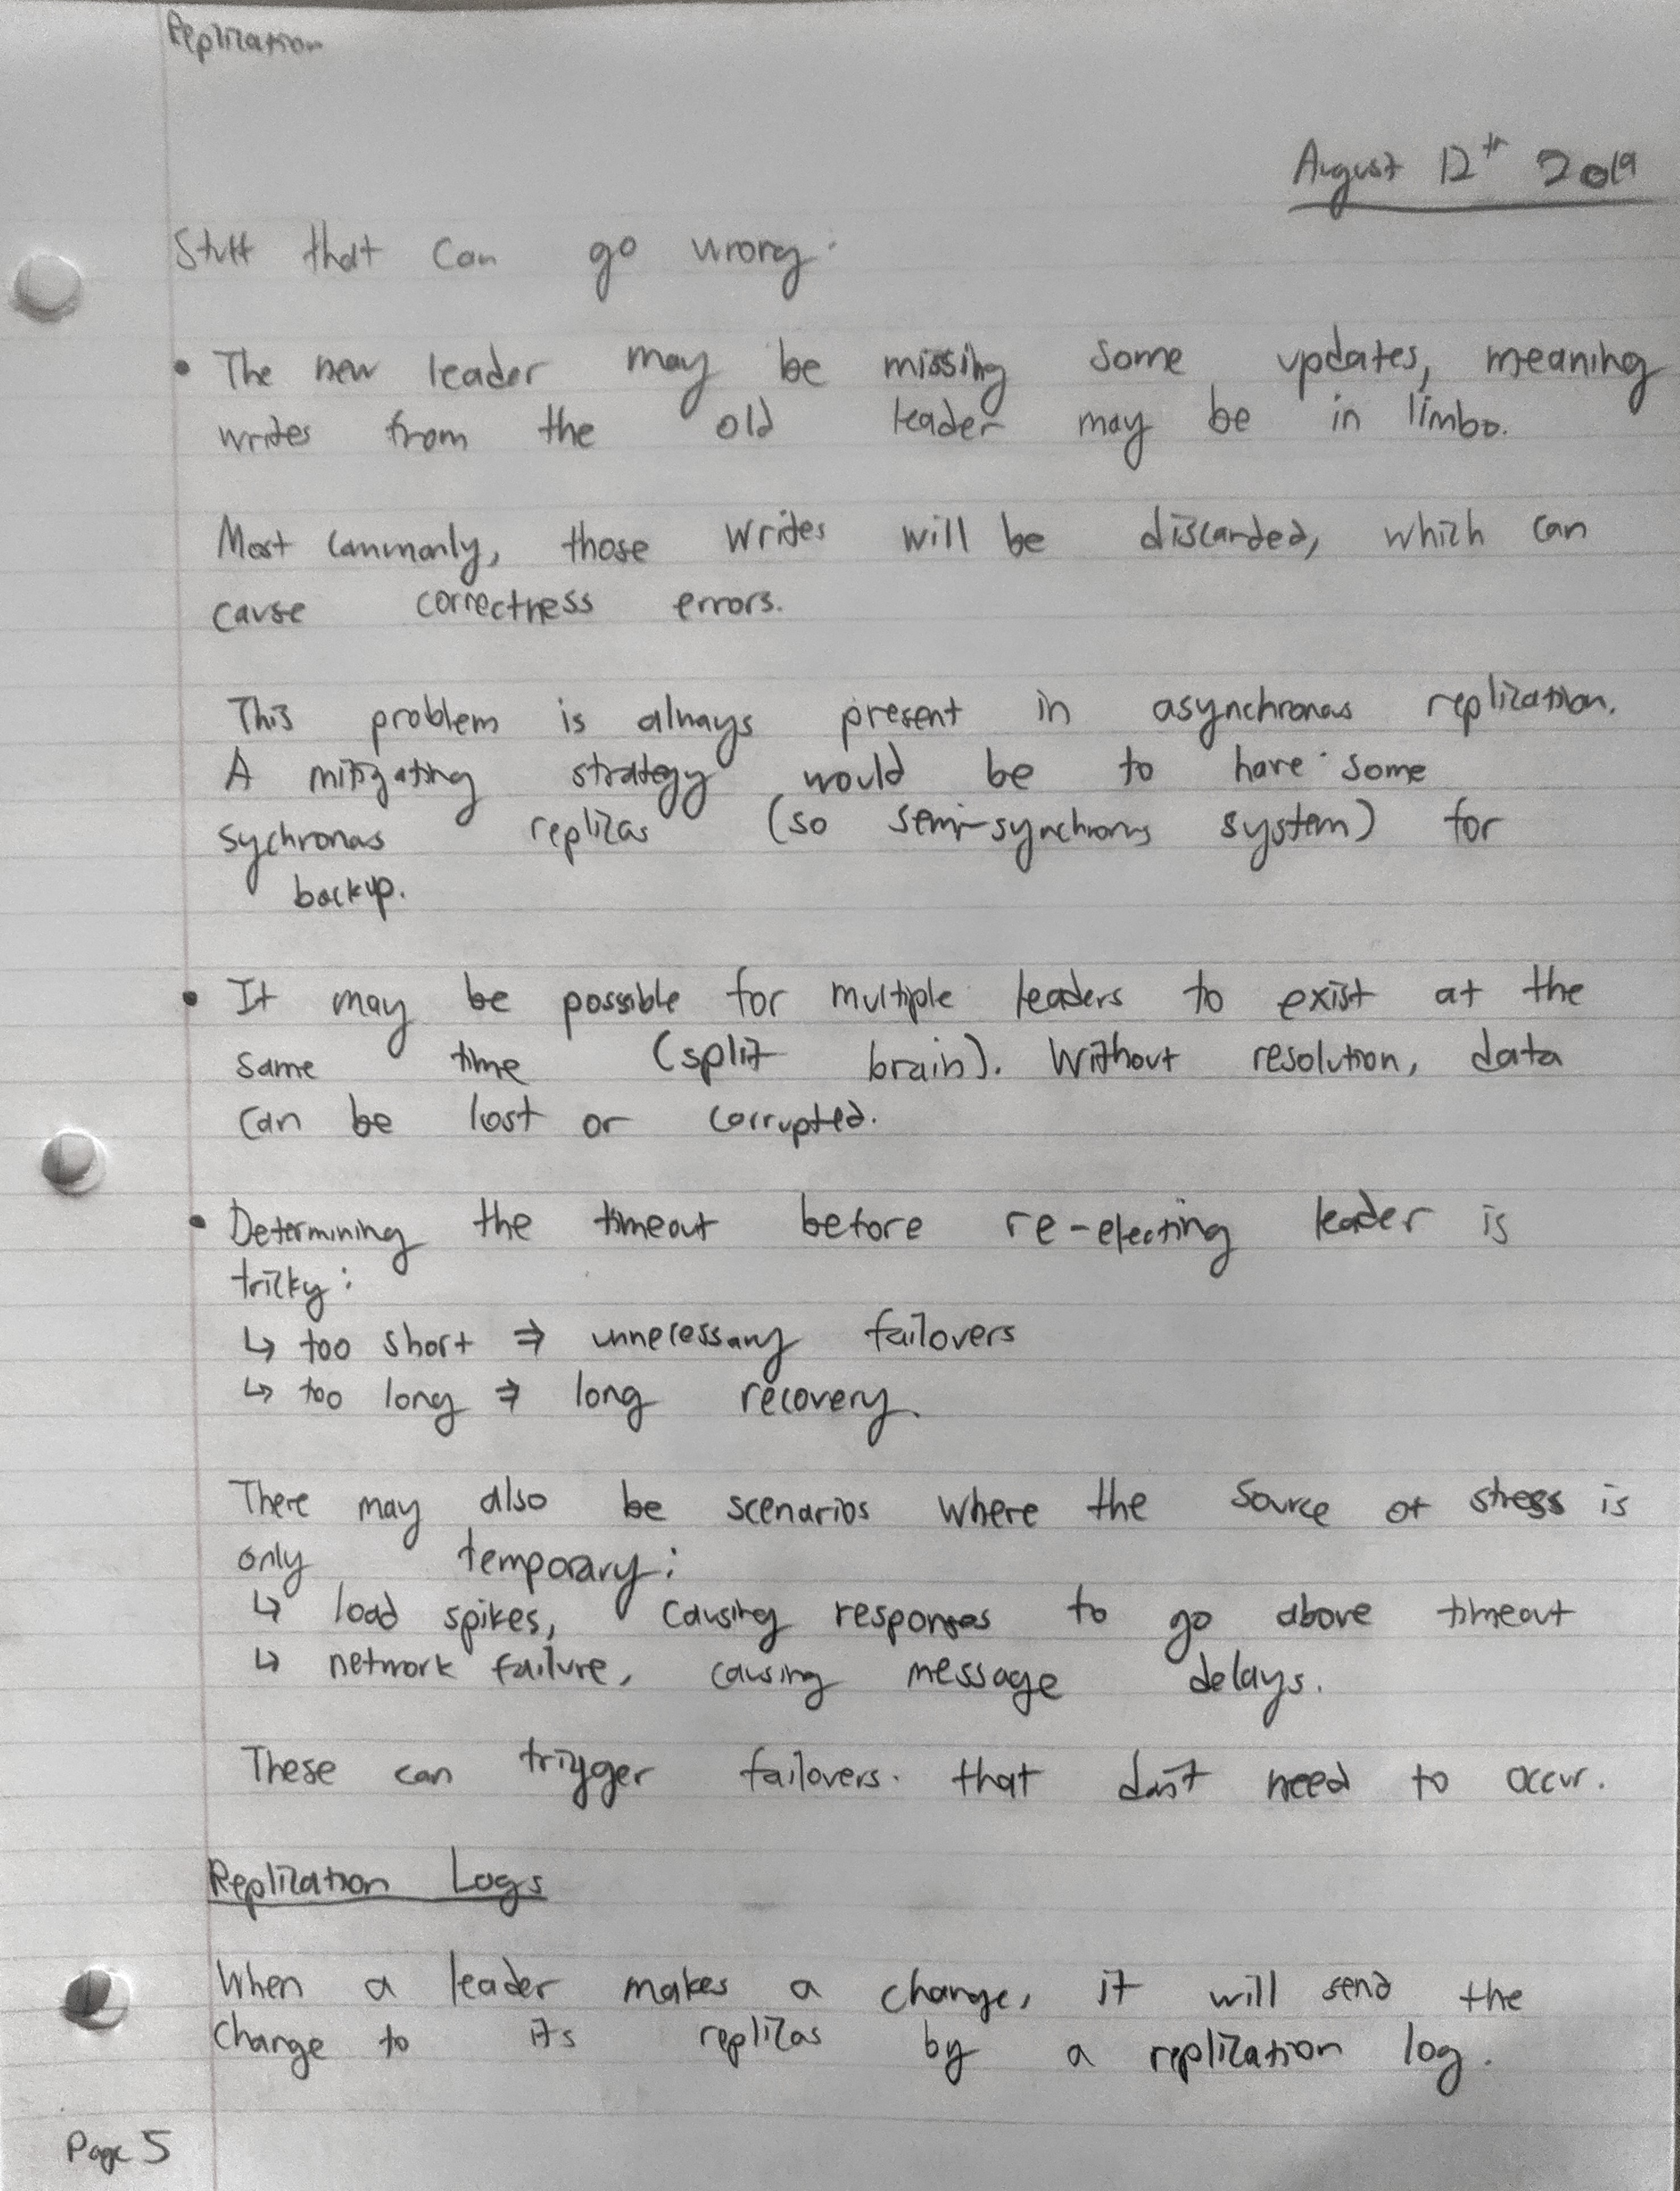 Replication
August 12th 2019
Stuff that can go wrong:
• The new leader may be missing some updates, meaning
writes from the old leader may be in limbo.
Most commonly, those writes will be discarded, which can
cause correctness errors.
This problem is always present in asynchronous replication.
A mitigating strategy would be to have some
sychronous replicas (so semi-synchronous system) for
backup.
• It may be possible for multiple leaders to exist at the
same time (split brain). Without resolution, data
can be lost or corrupted.
• Determining the timeout before re-electing leader is
tricky:
↳ too short ⇒ unnecessary failovers
↳ too long ⇒ long recovery.
There may also be scenarios where the source of stress is
only temporary:
↳ load spikes, causing responses to go above timeout
↳ network failure, causing message delays.
These can trigger failovers that don't need to occur.
Replication Logs
When a leader makes a change, it will send the
change to its replicas by a replication log.
Page 5